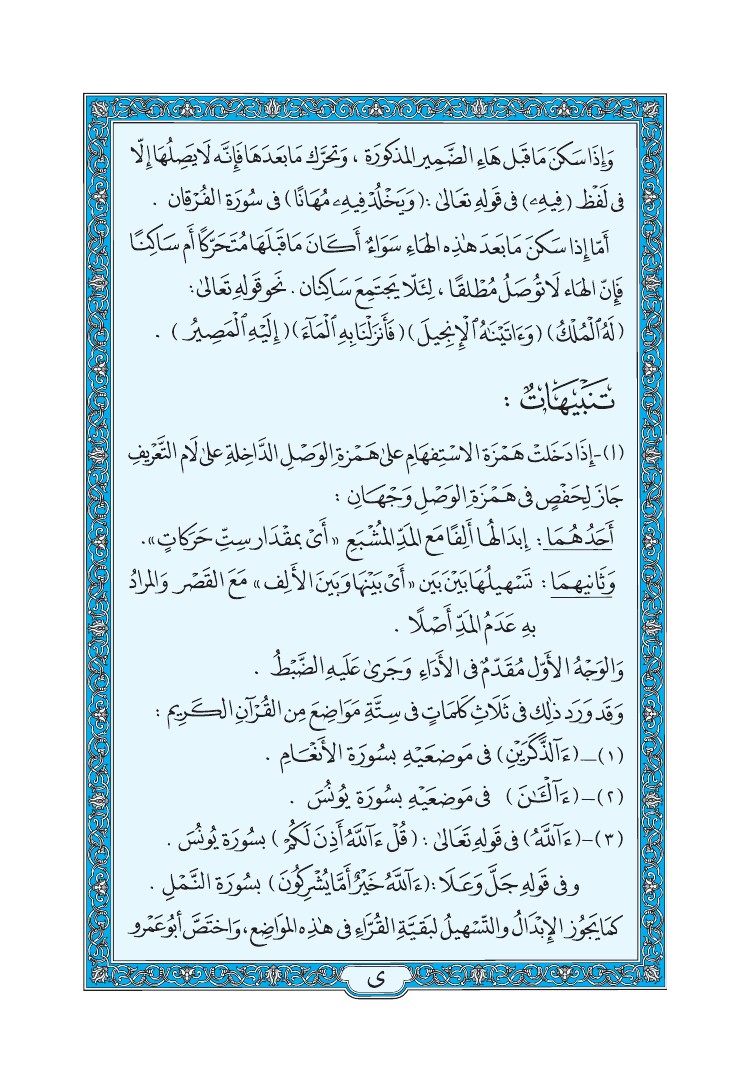 وَإِذَا سَكَنَ مَا قَبْل هَاءِ الضَّمِيرِ المَذكُورَة ، وَتَحَرَّك مَا بَعدَهَا فَإِنَّه لَا يَصِلُهَا إِلَّا
فى لَفْظ (فِيهِۦ) فى قَولِهِ تَعَالىٰ : (وَيَخْلُدْ فِيهِۦ مُهَانًا) فى سُورَة الفُرْقان .
أمَّا إذَا سَكَنَ مَا بَعدَ هٰذِهِ الهَاءِ سَوَاءٌ أَكَانَ مَا قَبلَهَا مُتَحَرِّكًا أم سَاكِنًا
فَإِنَّ الهَاء لَا تُوصَلُ مُطْلَقًا ، لِئَلَّا يَجتَمِعَ سَاكِنان . نَحوَ قَولِهِ تَعَالىٰ:
(لَهُ ٱلْمُلْكُ) (وَءَاتَيْنَٰهُ ٱلْإِنجِيلَ) (فَأَنزَلْنَا بِهِ ٱلْمَآءَ) (إِلَيْهِ ٱلْمَصِيرُ ) .
تَنبَيهَاتٌ :
(١)-إذَا دَخَلَتْ هَمْزَة الاسْتِفهَامِ عَلىٰ هَمْزةِ الوَصْلِ الدَّاخِلةِ عَلىٰ لَام التَّعْرِيفِ
جَازَ لِحَفْصٍ فى هَمْزَةِ الوَصْلِ وَجْهَانِ :
أَحَدُهُمَا : إبدَالُها أَلِفًا مَع المَدِّ المُشْبَعِ «أَىْ بِمقْدَار سِتِّ حَرَكاتٍ».
وَثَانِيهِمَا : تَسْهِيلُهَا بَيْنَ بَين «أَىْ بَيْنَهَا وَبَينَ الأَلِف» مَعَ القَصْر وَالمرادُ
بِهِ عَدَمُ المَدِّ أَصْلًا .
وَالوَجْهُ الأَوَّل مُقَدَّمٌ فى الأَدَاءِ وَجَرىٰ عَلَيهِ الضَّبْطُ .
وَقَد وَرَد ذٰلِك فى ثَلَاثِ كَلمَاتٍ فى سِتَّةِ مَوَاضِعَ مِن القُرْآنِ الكَرِيم :
(١)-(ءَآلذَّكَرَيْنِ) فى مَوضعَيْهِ بسُورَة الأنْعَامِ .
(٢)-(ءَآلْـَٰٔنَ ) فى مَوضعَيْهِ بسُورَة يُونُسَ .
(٣)-(ءَآللَّهُ) فى قَولِهِ تَعَالىٰ : (قُلْ ءَآللَّهُ أَذِنَ لَكُمْ) بسُورَة يُونُسَ .
وفى قَولِهِ جَلَّ وَعَلَا :(ءَآللَّهُ خَيْرٌ أَمَّا يُشْرِكُونَ) بسُورَة النَّمْلِ .
كمَا يَجُوز الإبْدَالُ والتَّسْهِيلُ لبَقيَّةِ القُرَّاءِ فى هٰذِهِ المَوَاضِع، وَاختَصَّ أبُو عَمْرٍو
ى